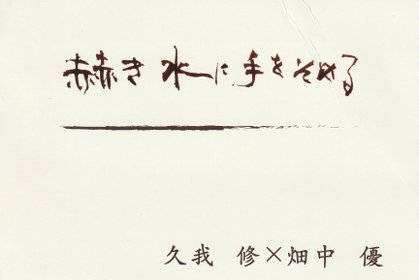 赫き水に手をそめる
久我 修×畑中 優